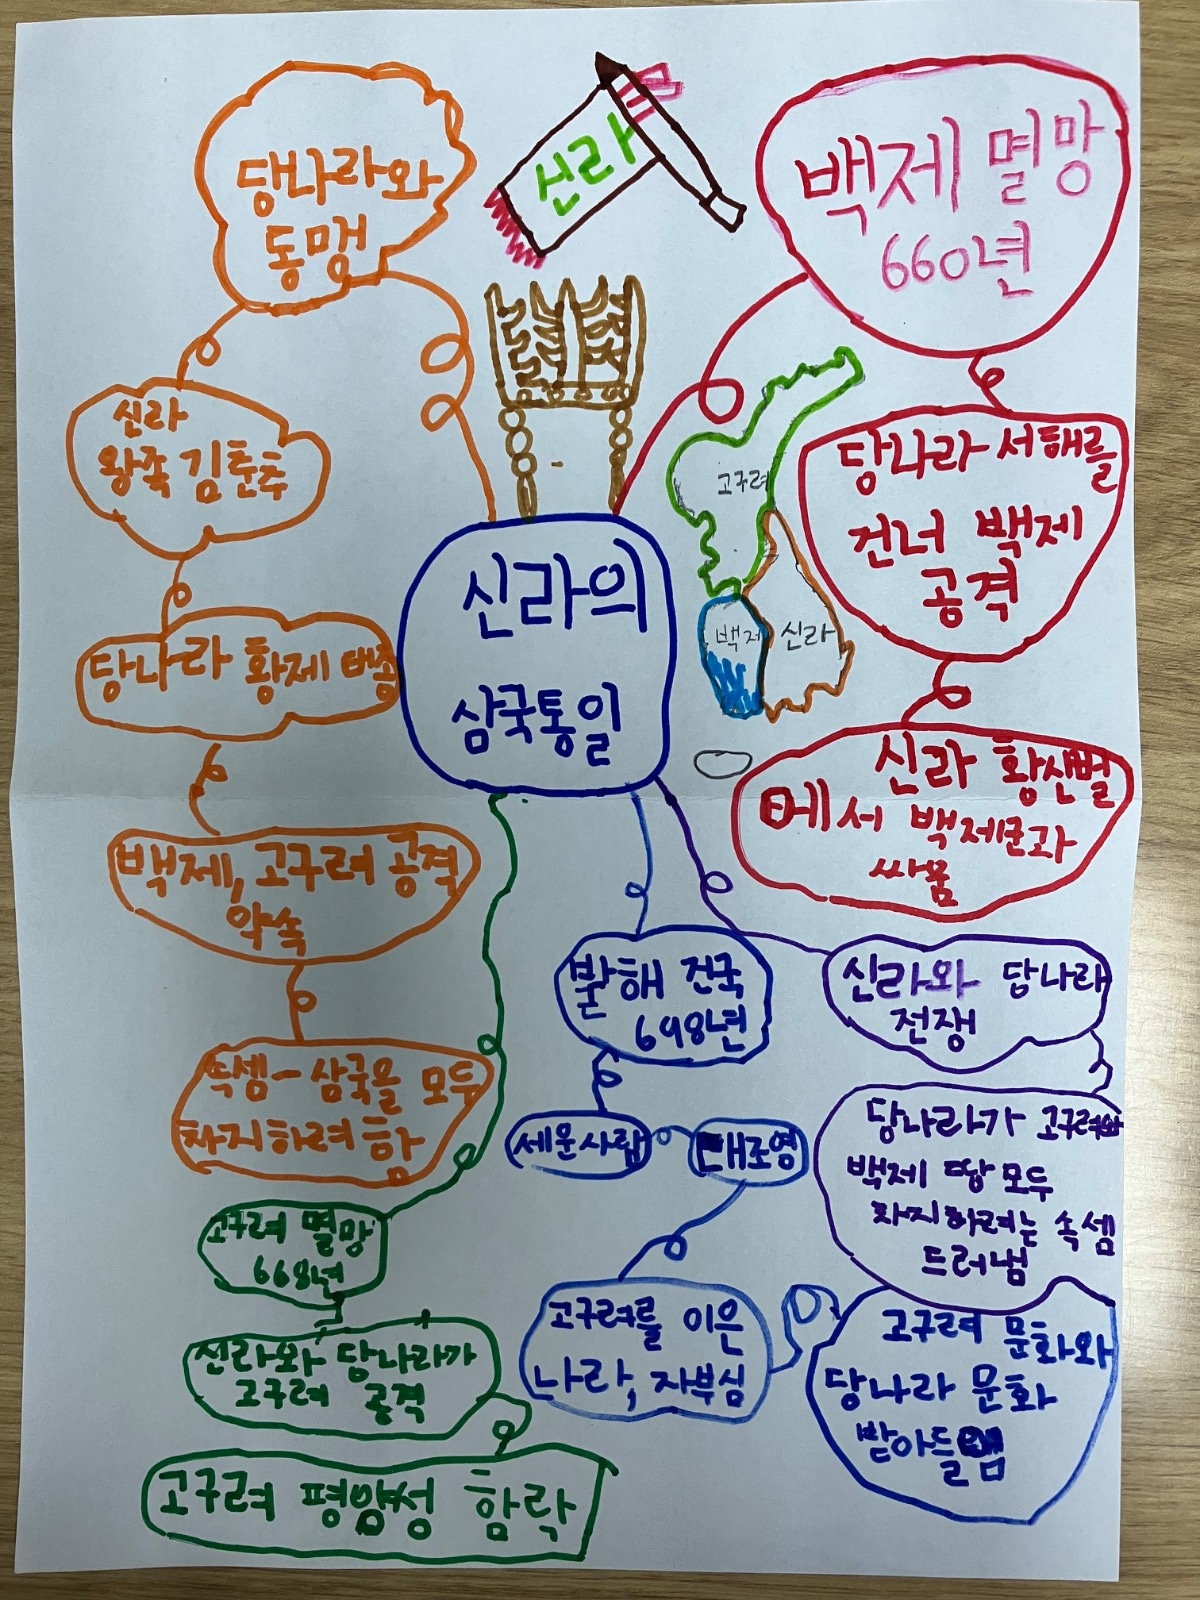 신라
당나라와
동맹
신라
왕족 김춘추
당나라 황제 태종
백제, 고구려 공격
약속
속셈 - 삼국을 모두
차지하려 함
백제 멸망
660년
당나라 서해를
건너 백제
공격
신라 황산벌
에서 백제군과
싸움
고구려
백제
신라
신라의
삼국통일
발해 건국
698년
세운사람
대조영
고구려를 이은
나라, 자부심
고구려 문화와
당나라 문화
받아들임
신라와 당나라
전쟁
당나라가 고구려와
백제 땅 모두
차지하려는 속셈
드러냄
고구려 멸망
668년
신라와 당나라가
고구려 공격
고구려 평양성 함락